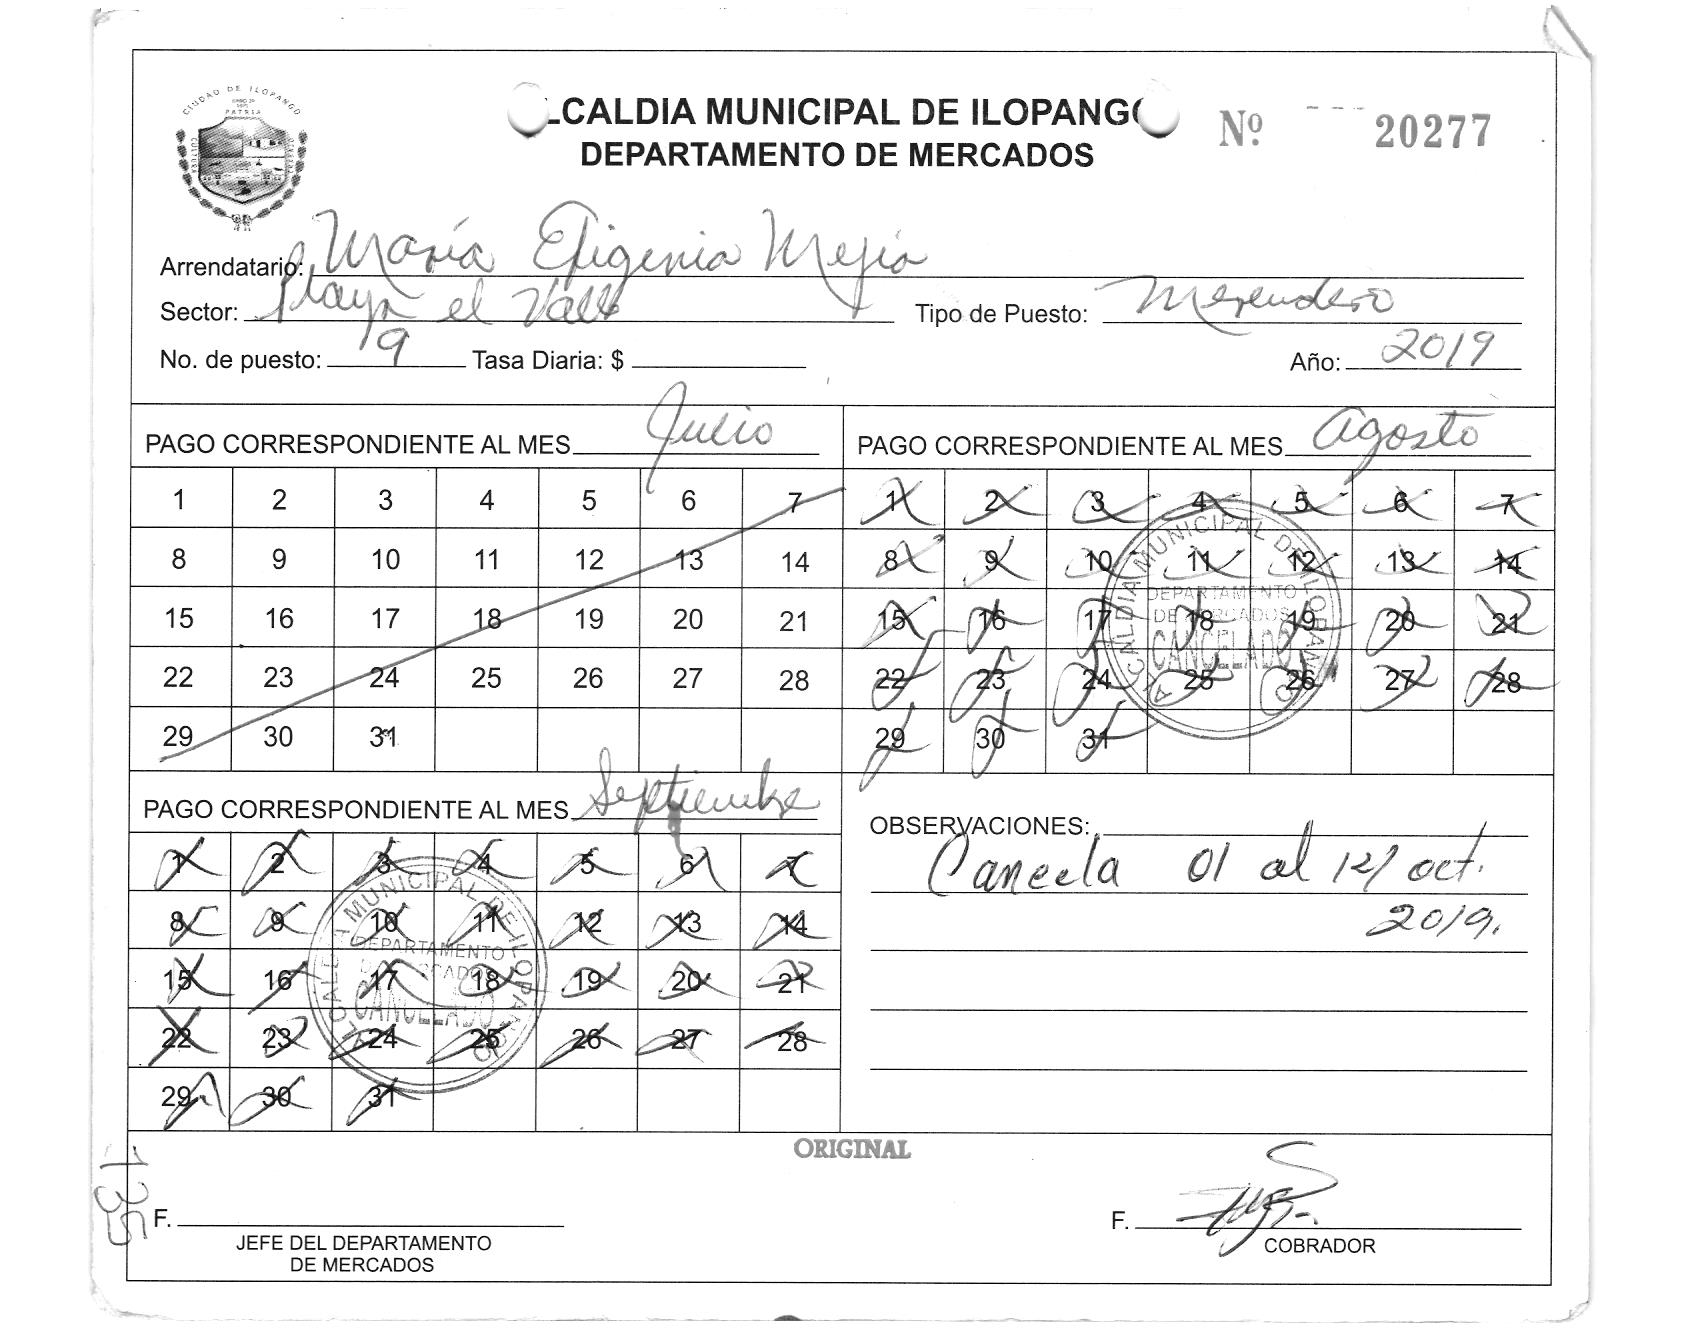 CIUDAD DE ILOPANGO
PATRIA
CULTURA
LCALDIA MUNICIPAL DE ILOPANGO
DEPARTAMENTO DE MERCADOS
Nº 20277
Arrendatario: María Efigenia Mejía
Sector: Playa el Valle Tipo de Puesto: Merendero
No. de puesto: 19 Tasa Diaria: $ Año: 2019
PAGO CORRESPONDIENTE AL MES Julio
1 2 3 4 5 6 7
8 9 10 11 12 13 14
15 16 17 18 19 20 21
22 23 24 25 26 27 28
29 30 31
PAGO CORRESPONDIENTE AL MES Agosto
1 2 3 4 5 6 7
8 9 10 11 12 13 14
15 16 17 18 19 20 21
22 23 24 25 26 27 28
29 30 31
ALCALDIA MUNICIPAL DE ILOPANGO
DEPARTAMENTO
DE MERCADOS
CANCELADO
PAGO CORRESPONDIENTE AL MES Septiembre
1 2 3 4 5 6 7
8 9 10 11 12 13 14
15 16 17 18 19 20 21
22 23 24 25 26 27 28
29 30 31
ALCALDIA MUNICIPAL DE ILOPANGO
DEPARTAMENTO
DE MERCADOS
CANCELADO
OBSERVACIONES:
Cancela 01 al 12/ oct.
2019.
ORIGINAL
F.
JEFE DEL DEPARTAMENTO
DE MERCADOS
F.
COBRADOR
135